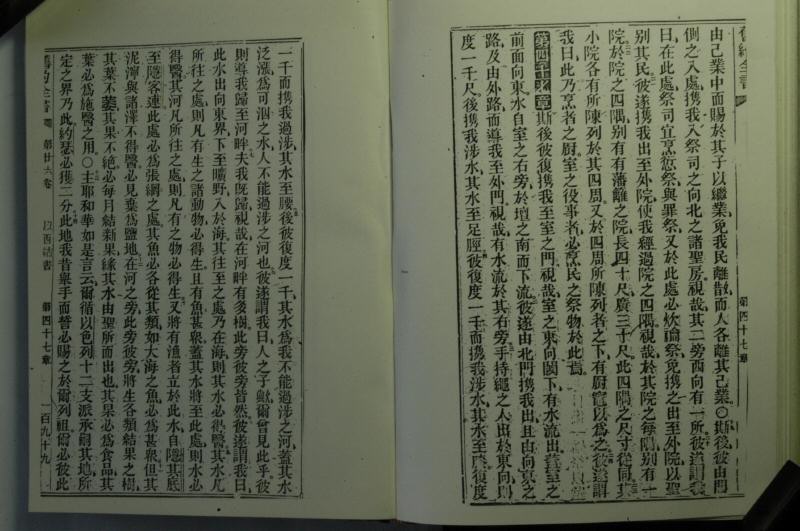 舊約全書
由己業中而賜於其子以繼業免我民離散而人各離其己業○斯後彼由門
側之入處携我入祭司之向北之諸聖房視哉其二旁西向有一所彼遂謂我
曰在此處祭司宜烹愆祭與罪祭又於此處必炊論祭免携之出至外院以聖
別其民彼遂携我出至外院使我經過院之四隅視哉於其院之每隅别有一
院於院之四隅别有有藩離之院長四十尺廣三十尺此四隅之尺寸從同其
小院各有所陳列於其四周又於四周所陳列者之下有厨竈以爲之彼遂謂
我曰此乃烹者之厨室之役事者必烹民之祭物於此焉
第四十七章斯後彼復携我至室之門視哉室之東向閾下有水流出蓋室之
前面向東水自室之右旁於壇之南而下流彼遂由北門携我出且由向京之
路及由外路而導我至外門視哉有水流於其右旁手持繩之人出於東向則
度一千尺後携我涉水其水至足脛彼復度一千而携我涉水其水至膝彼復度
第四十七章
一千而携我過涉其水至腰後彼復度一千其水爲我不能過涉之河蓋其水
泛漲爲可泅之水人不能過涉之河也彼遂謂我曰人之子歟爾曾見此乎彼
則導我歸至河畔夫我旣歸視哉在河畔有多樹此旁彼旁皆然彼遂謂我曰
此水出向東界下至曠野入於海其往至之處乃在海則其水必得醫其水凡
所往之處則凡有生之諸動物必得生且有魚甚衆蓋其水將至此處則水必
得醫其河凡所往之處則凡有之物必得生又將有漁者立於此水自隱其底
至隱客連此處必爲張網之處其魚必各從其類如大海之魚必爲甚衆但其
泥濘與諸澤不得醫必見棄爲鹽地在河之旁此旁彼旁將生各類結果之樹
其葉不萎其果不絕必每月結新果緣其水由聖所而出也其果必爲食品其
葉必爲施醫之用○主耶和華如是言云爾循以色列十二支派承嗣其地所
定之界乃此約瑟必獲二分此地我昔舉手而誓必賜之於爾列祖爾必彼此
舊約全書 第廿六卷 以西詰書 第四十七章 一百九十九